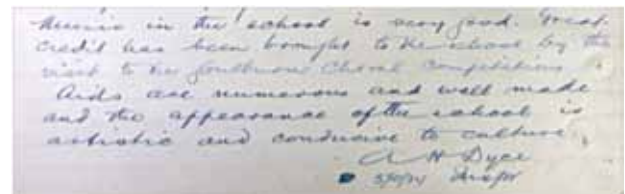 Music in the school is very good. Great
credit has been brought to the school by the
visit to the Goulburn Choral Competitions.
Aids are numerous and well made
and the appearance of the school is
artistic and conducive to culture.
A H Dyce
Inspr